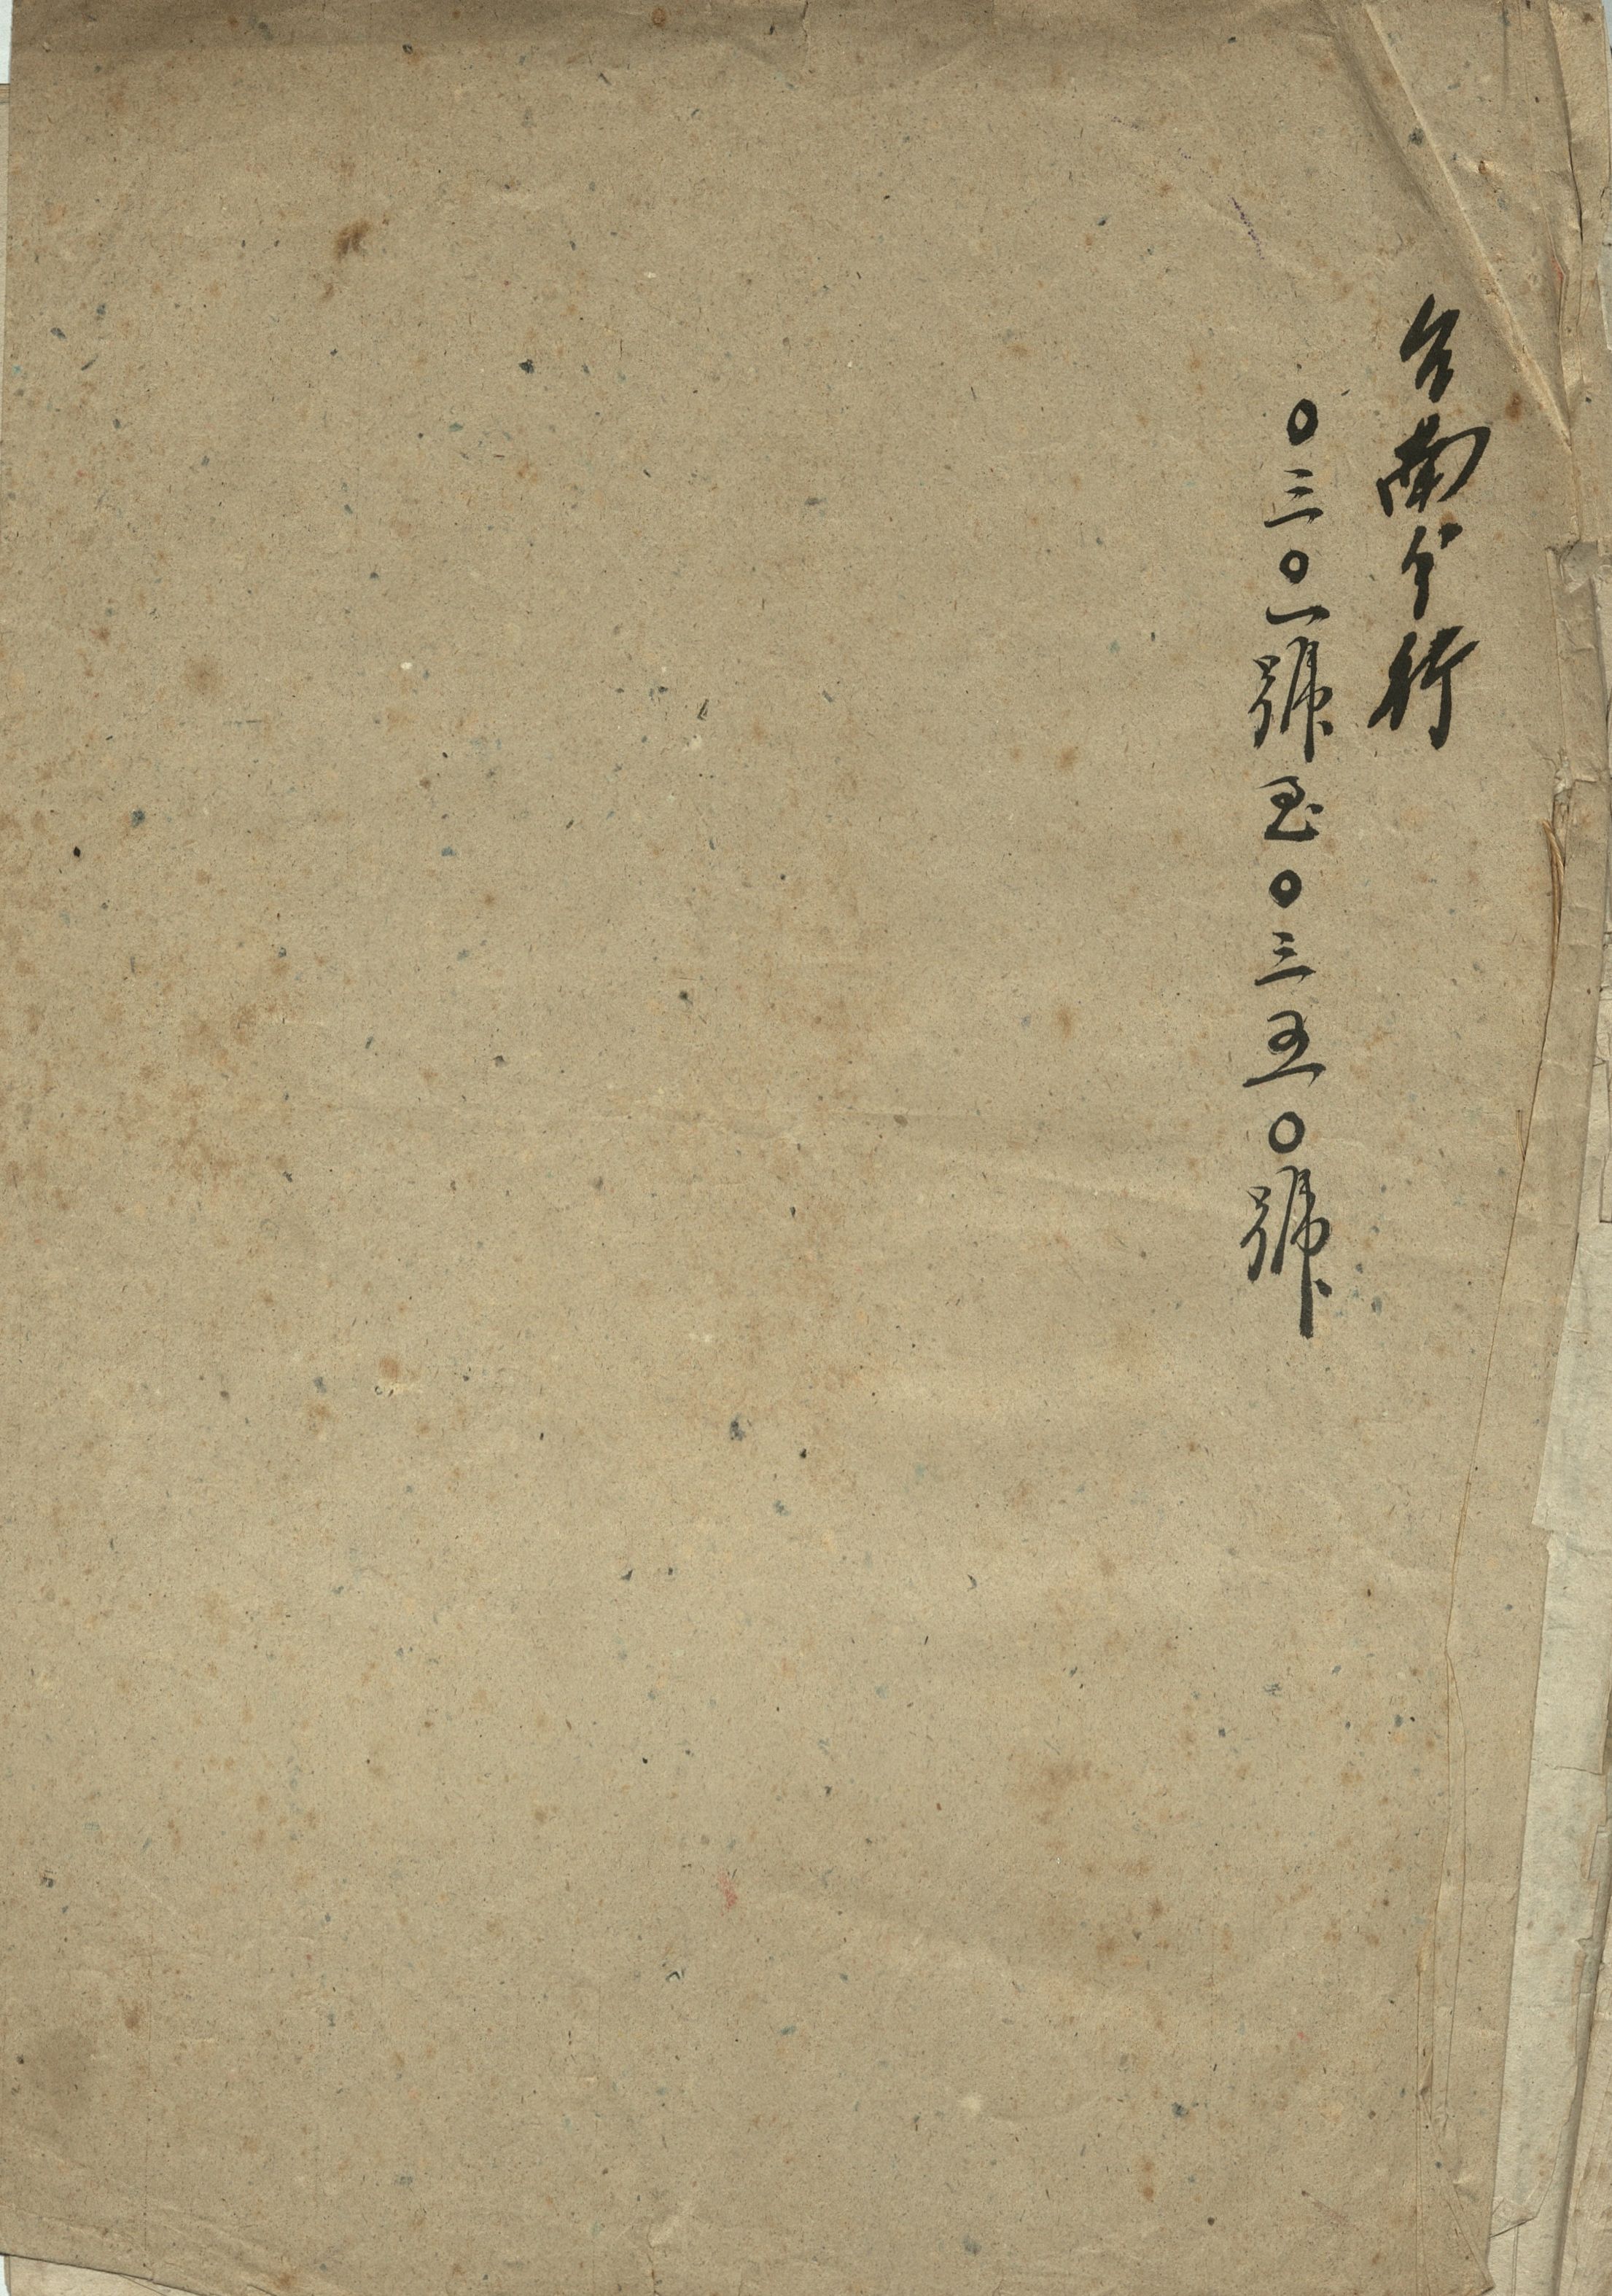 台南分行
〇三〇一號至〇三五〇號